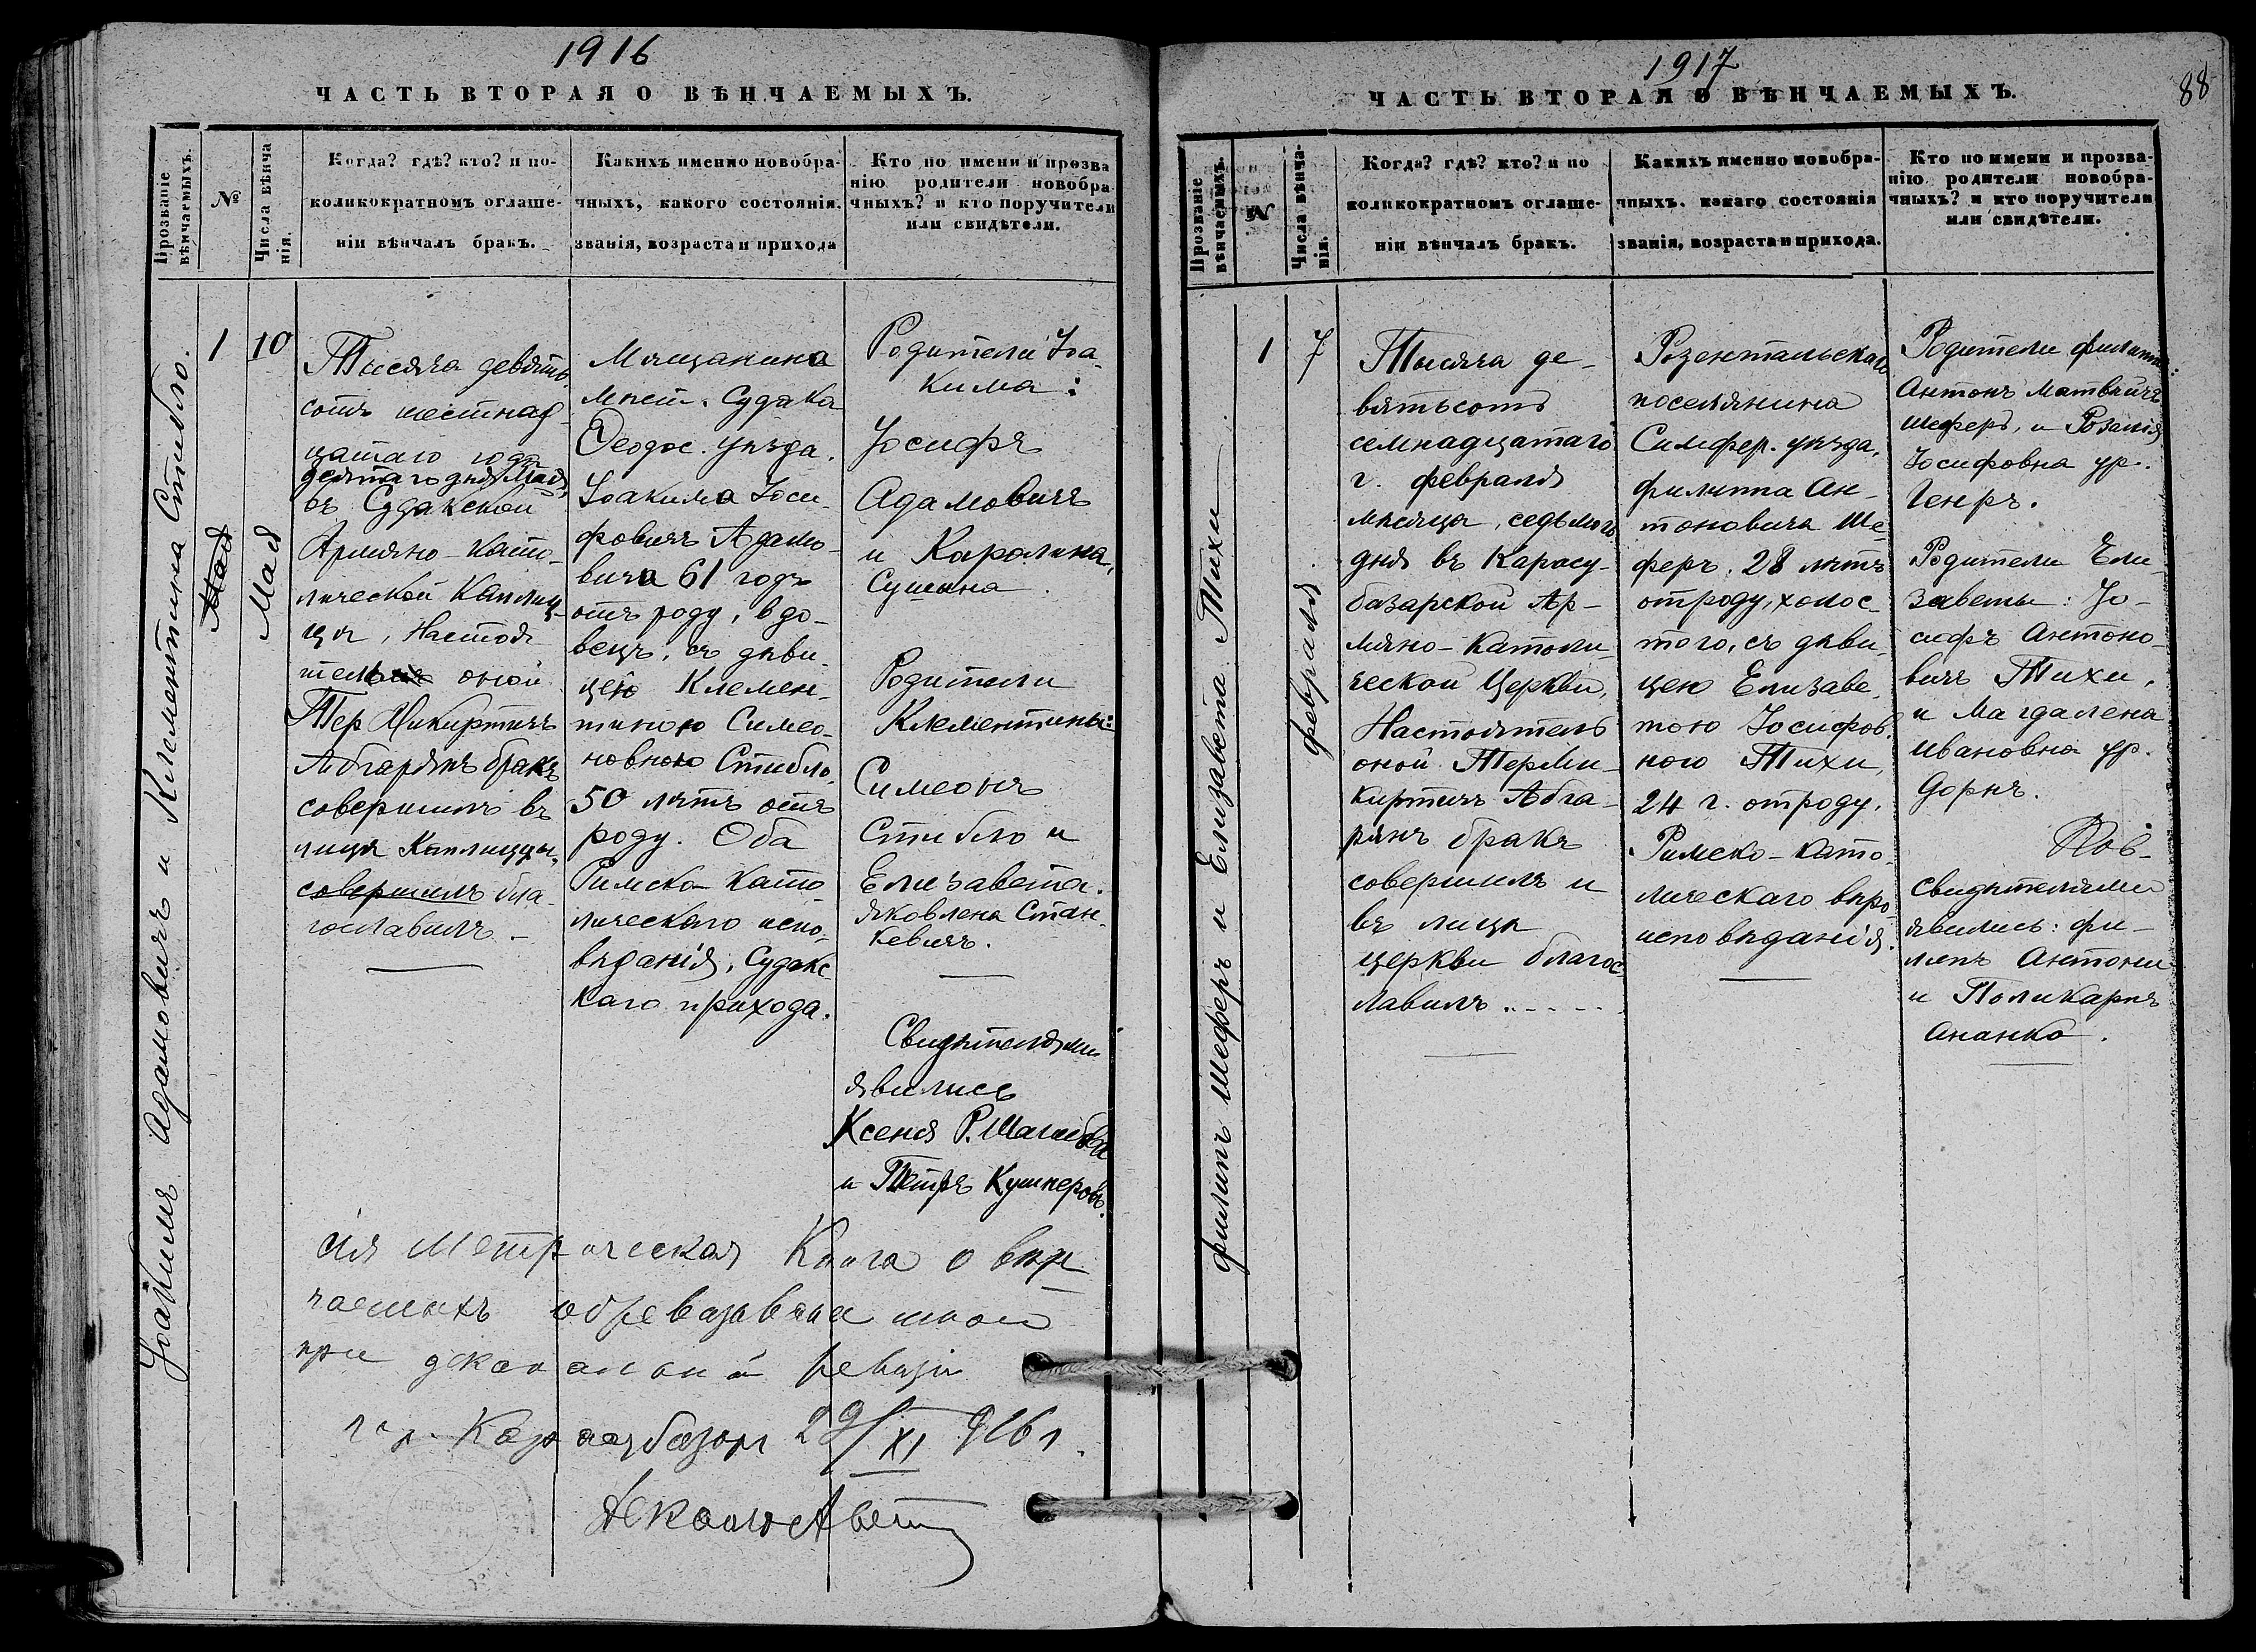 1916
ЧАСТЬ ВТОРАЯ О ВѢНЧАЕМЫХЪ.
Прозваніе
вѣнчаемыхъ.
№
Числа вѣнча-
нія.
Когда? гдѣ? кто? и по-
коликократномъ оглаше-
ніи вѣнчалъ бракъ.
Какихъ именно новобра-
чныхъ, какого состоянія,
званія, возраста и прихода
Кто по имени и прозва
нію родители новобра
чныхъ? и кто поручители
или свидѣтели.
Іоакимъ Адамовичъ и Клементина Стибло.
1
Мая
10
Мая
Тысяча девять
сотъ шестнад
цатаго года
десятаго дня Мая,
въ Судакской
Армяно-Като-
лической Каплиц-
цѣ, Настоя
тель оной
Тер Мкиртичъ
Абгарянъ бракъ
совершилъ въ
лицѣ Каплиццы,
совершилъ бла-
гославилъ –
Мѣщанина
мѣст. Судака
Ѳеодос. уѣзда.
Іоакима Іоси
фовичъ Адамо-
вича 61 годъ
отъ роду, вдо-
вецъ, съ дѣви-
цею Клемен-
тиною Симео-
новною Стибло,
50 лѣтъ отъ
роду. Оба
Римско-Като
лическаго испо-
вѣданія, Судакс-
каго прихода.
Родители Іоа-
кима:
Іосифъ
Адамовичъ
и Каролина,
Сушина.
Родители
Клементины:
Симеонъ
Стибло и
Елизавета.
Яковлена Стан-
кевичъ.
Свидѣтелями
явились
Ксенія Р. Шагиева
и Петръ Кушнеровъ.
Сія Метрическая Книга о вѣн
чаемыхъ обревизована мной
при деканальной ревизіи
гор. Карасубазаръ 29/XI 916 г.
1917
88
ЧАСТЬ ВТОРАЯ О ВѢНЧАЕМЫХЪ.
Прозваніе
вѣнчаемыхъ.
№
Числа вѣнча-
нія.
Когда? гдѣ? кто? и по
коликократномъ оглаше-
ніи вѣнчалъ бракъ.
Какихъ именно новобра-
чныхъ, какаго состоянія
званія, возраста и прихода.
Кто по имени и прозва-
нію родители новобра-
чныхъ? и кто поручители
или свидѣтели.
Филипъ Шеферъ и Елизавета Тихи
1
7
февраля
Тысяча де-
вятьсотъ
семнадцатаго
г. февраля
мѣсяца, седьмого
дня въ Карасу-
базарской Ар-
мяно-Католи-
ческой Церкви,
Настоятель
оной Тер Мк-
киртичъ Абга-
рянъ бракъ
совершилъ и
въ лицѣ
церкви благос-
лавилъ . . - - -
Розентальскаго
поселянина
Симфер. уѣзда,
филиппа Ан-
тоновича Ше-
феръ, 28 лѣтъ
отроду, холос-
того, съ дѣви-
цею Елизаве-
тою Іосифов-
ною Тихи,
24 г. отроду,
Римско-като-
лическаго вѣро-
исповѣданія.
Родители филиппа:
Антонъ Матвѣичъ
Шеферъ, и Розалія
Іосифовна ур.
Генръ.
Родители Ели-
заветы: Іо-
сифъ Антоно-
вичъ Тихи,
и Магдалена
Ивановна ур.
Дорнъ.
свидѣтелями
явились: фи-
липъ Антони
и Поликарпъ
Ананко.